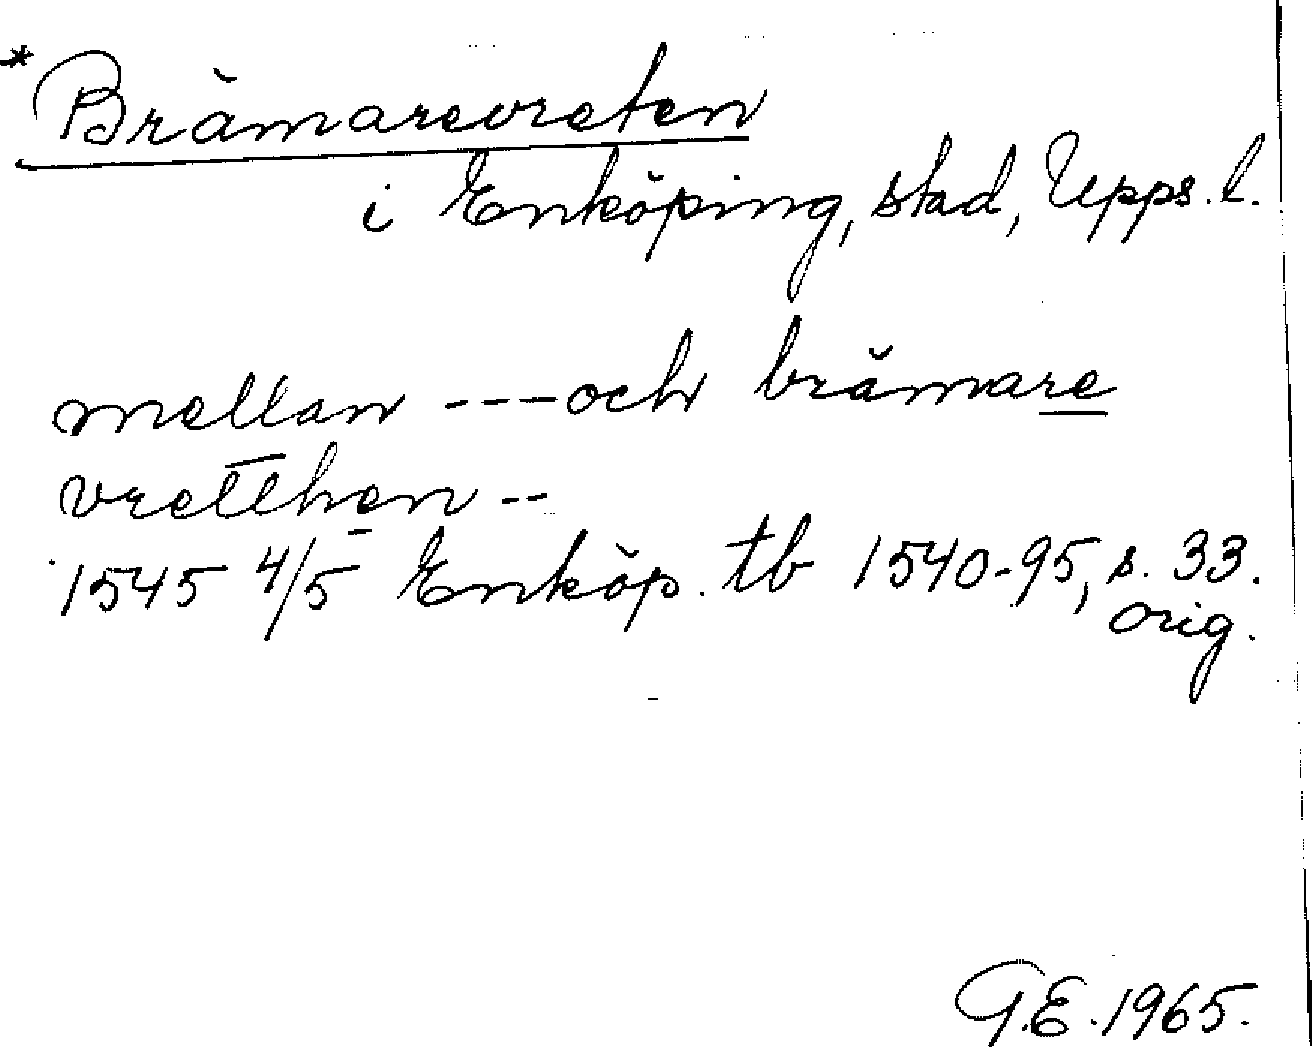 *Brämarevreten
i Enköping, stad, Upps. l.
mellan --- och brämare
vretthen --
1545 4/5 Enköp. tb 1540-95, s. 33.
orig.
G.E. 1965.